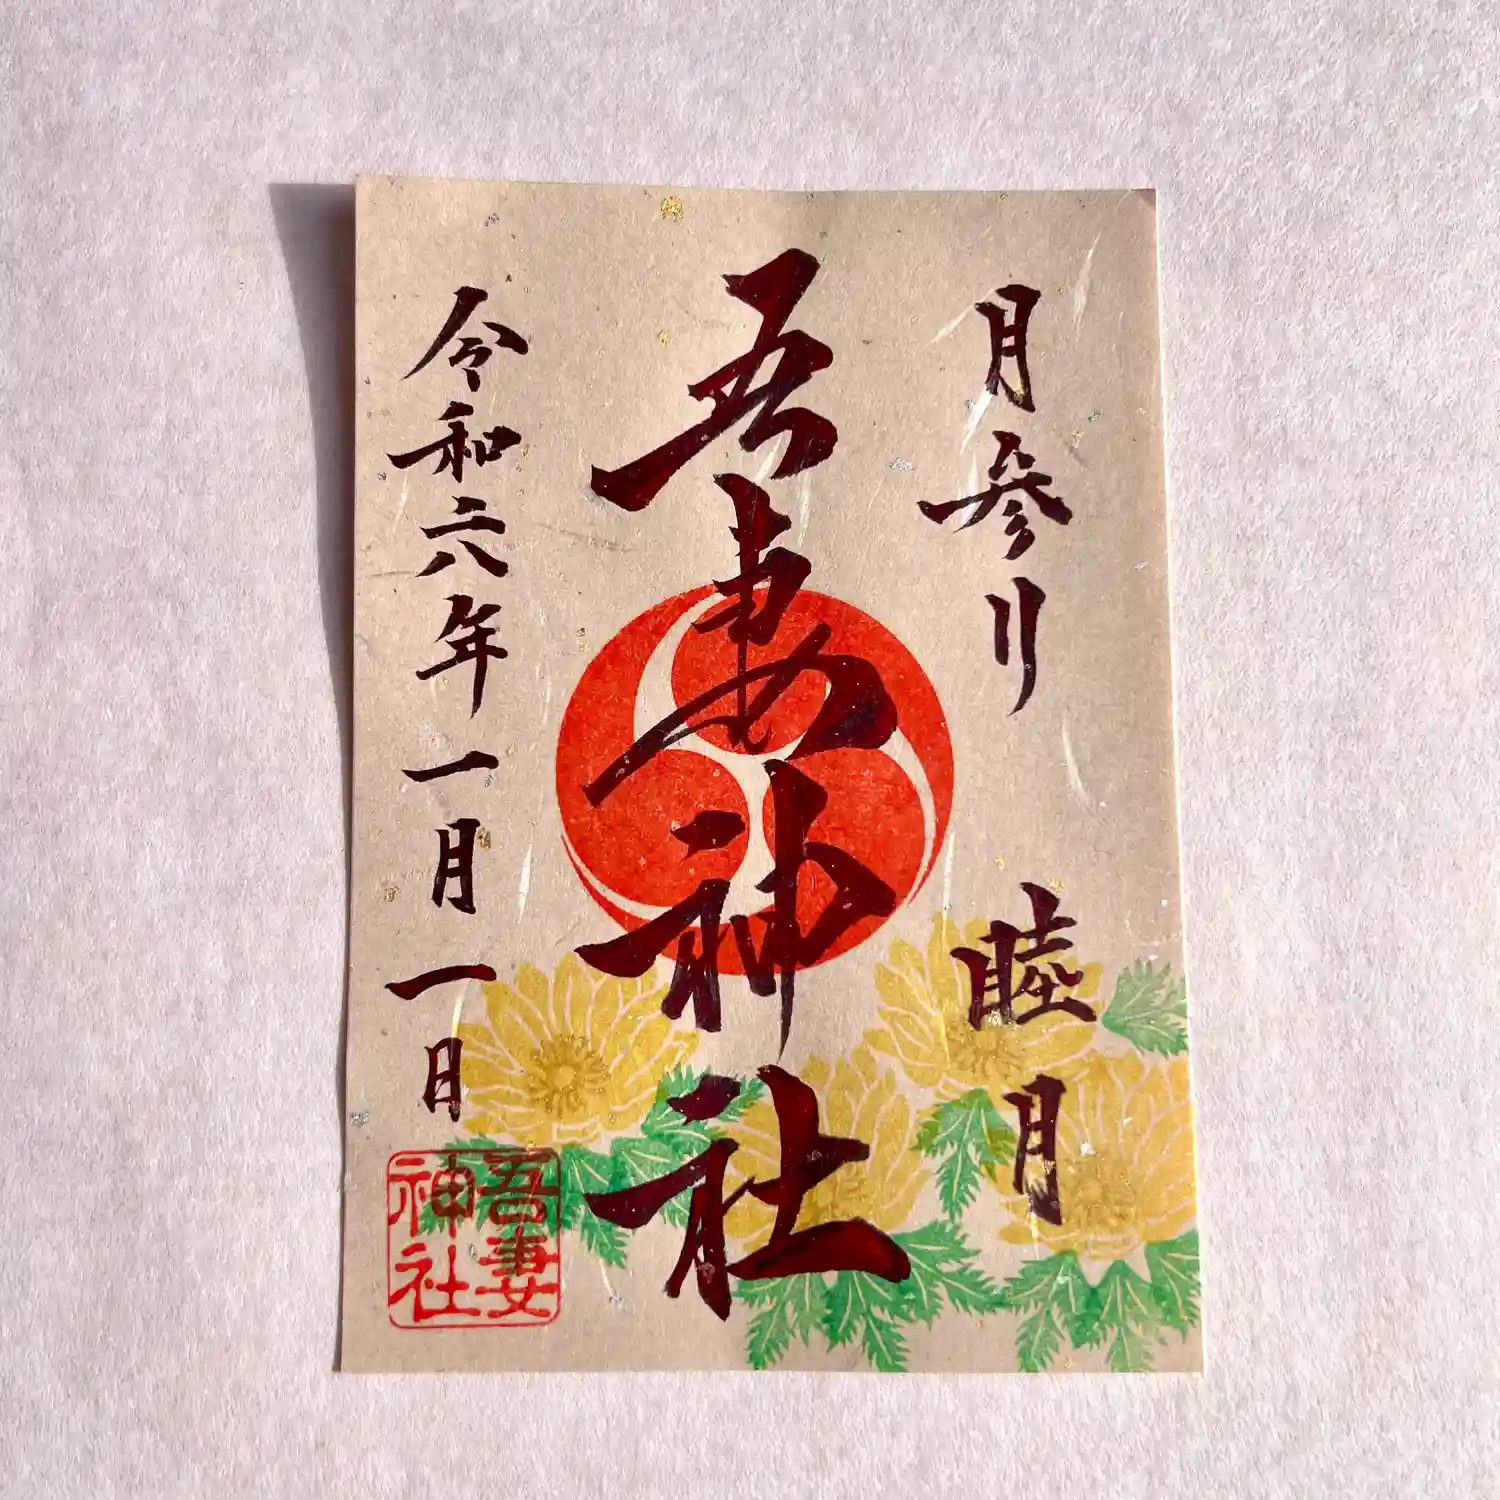 月参り
睦月
吾妻神社
令和六年一月一日
吾妻
神社